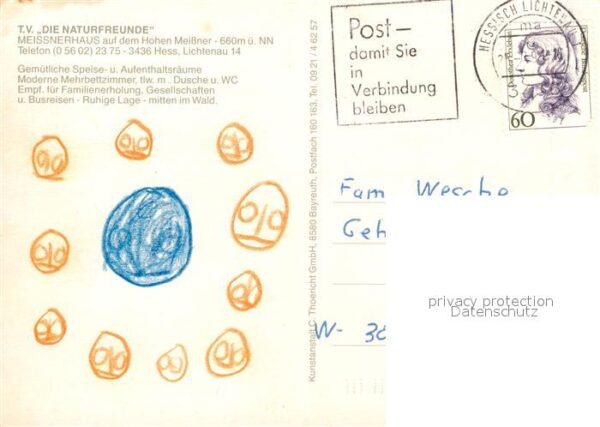 T.V. „DIE NATURFREUNDE"
MEISSNERHAUS auf dem Hohen Meißner - 660m ü. NN
Telefon (0 56 02) 23 75 - 3436 Hess, Lichtenau 14
Gemütliche Speise- u. Aufenthaltsräume
Moderne Mehrbettzimmer, tlw. m . Dusche u. WC
Empf. für Familienerholung, Gesellschaften
u. Busreisen - Ruhige Lage - mitten im Wald.
Kunstanstalt C. Thoericht GmbH, 8580 Bayreuth, Postfach 160 163, Tel. 09 21 / 4 62 57
Post-
damit Sie
in
Verbindung
bleiben
HESSISCH LICHTENAU
60
Fam
Geh
W- 36
privacy protection
Datenschutz